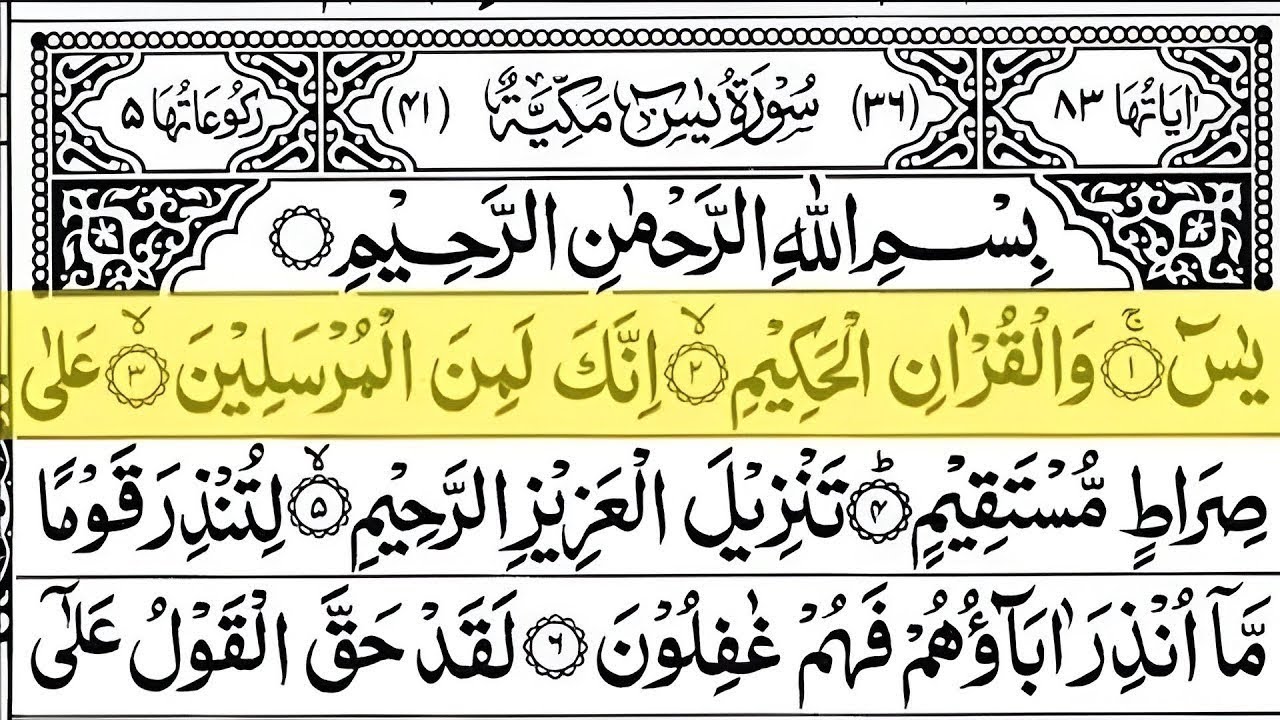 اٰيَاتُهَا ٨٣ (٣٦) سُوْرَةُ يٰسٓ مَكِّيَّةٌ (٤١) رُكُوْعَاتُهَا ٥
بِسْمِ اللّٰهِ الرَّحْمٰنِ الرَّحِيْمِ
يٰسٓ ۚ‏﴿١﴾ وَالْقُرْاٰنِ الْحَكِيْمِ ۙ‏﴿٢﴾ اِنَّكَ لَمِنَ الْمُرْسَلِيْنَ ۙ‏﴿٣﴾ عَلٰى
صِرَاطٍ مُّسْتَقِيْمٍ ؕ‏﴿۴﴾ تَنْزِيْلَ الْعَزِيْزِ الرَّحِيْمِ ۙ‏﴿۵﴾ لِتُنْذِرَ قَوْمًا
مَّاۤ اُنْذِرَ اٰبَآؤُهُمْ فَهُمْ غٰفِلُوْنَ ﴿٦﴾ لَقَدْ حَقَّ الْقَوْلُ عَلٰٓى